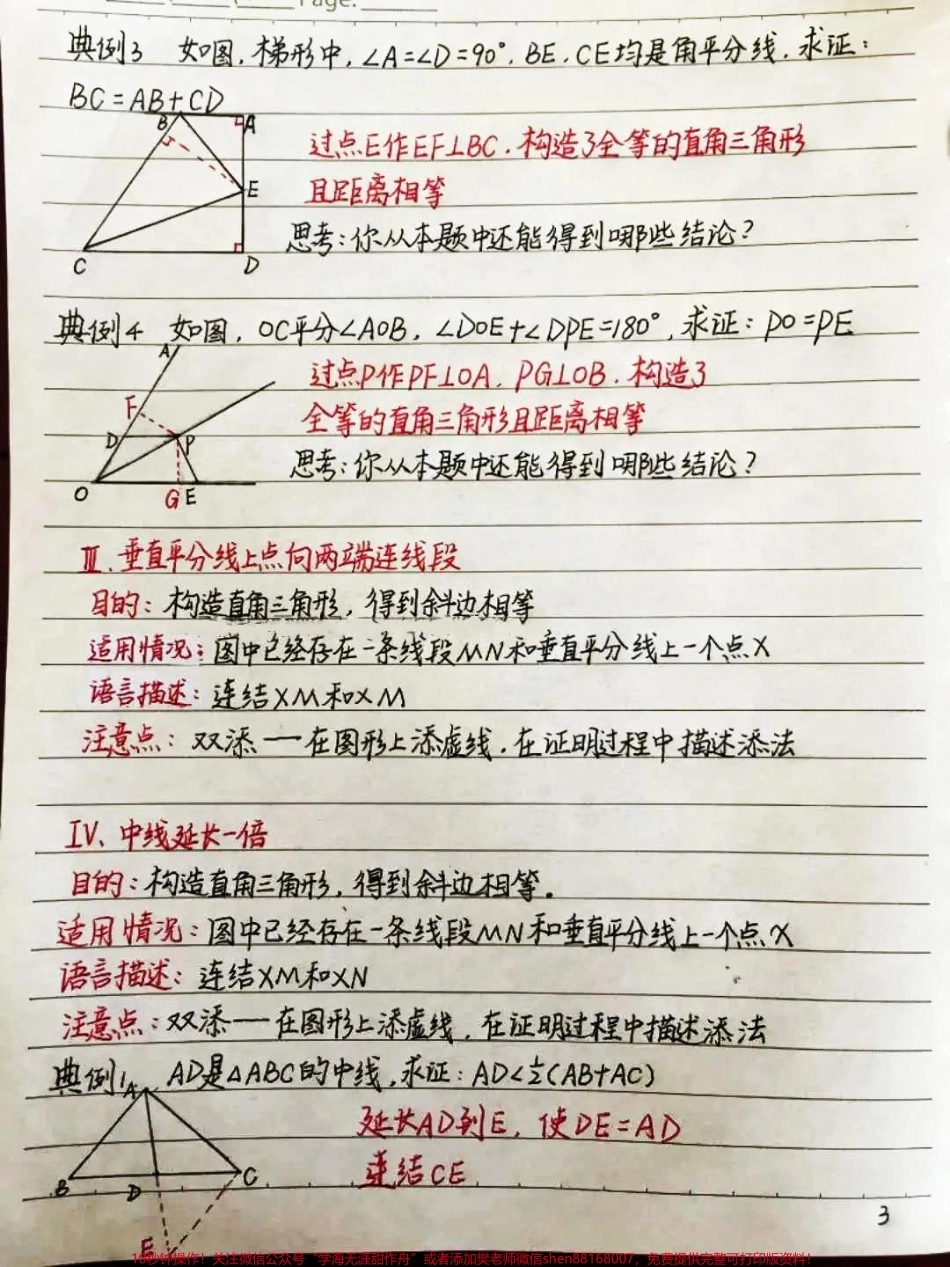 Page:
典例3 如图,梯形中,∠A=∠D=90°,BE、CE均是角平分线,求证:
BC=AB+CD
B A
过点E作EF⊥BC,构造了全等的直角三角形
E 且距离相等
思考:你从本题中还能得到哪些结论?
C D
典例4 如图,OC平分∠AOB,∠DOE+∠DPE=180°,求证:PD=PE
A
过点P作PF⊥OA,PG⊥OB,构造了
F 全等的直角三角形且距离相等
D P
思考:你从本题中还能得到哪些结论?
O G E
Ⅲ、垂直平分线上点向两端连线段
目的:构造直角三角形,得到斜边相等
适用情况:图中已经存在一条线段MN和垂直平分线上一个点X
语言描述:连结XM和XM
注意点:双添——在图形上添虚线,在证明过程中描述添法
Ⅳ、中线延长一倍
目的:构造直角三角形,得到斜边相等。
适用情况:图中已经存在一条线段MN和垂直平分线上一个点X
语言描述:连结XM和XN
注意点:双添——在图形上添虚线,在证明过程中描述添法
典例1 AD是△ABC的中线,求证:AD<½(AB+AC)
A
延长AD到E,使DE=AD
连结CE
B D C
3
E
10秒钟操作!关注微信公众号“学海无涯甜作舟”或者添加樊老师微信shen88168007,免费提供完整可打印版资料!